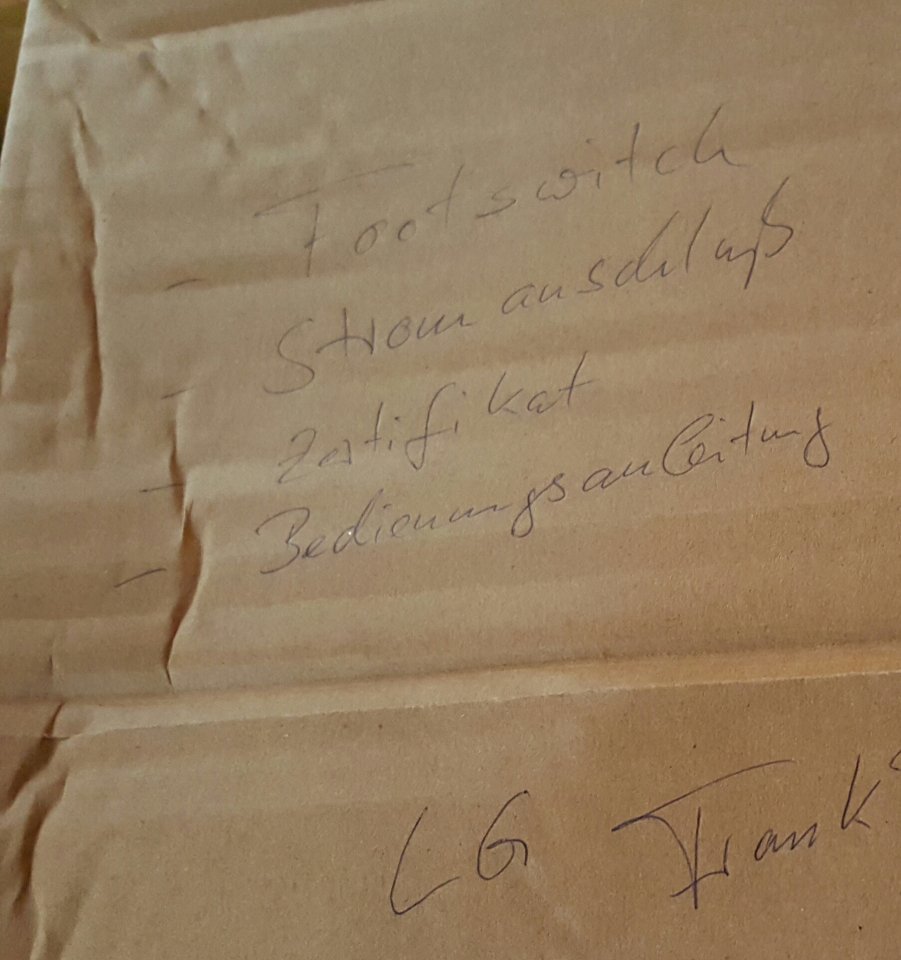 - Footswitch
- Stromanschluß
- Zertifikat
- Bedienungsanleitung
LG Frank